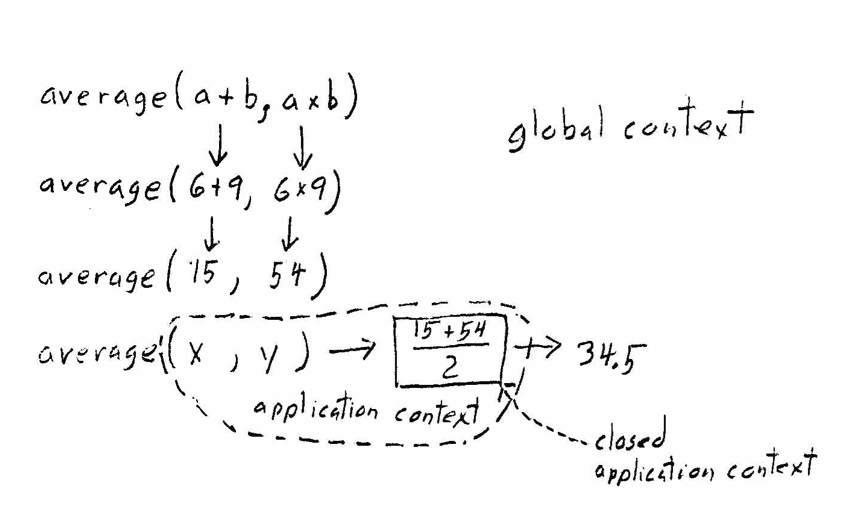 average(a+b, a×b)
global context
average(6+9, 6×9)
average(15, 54)
average(x, y) → 15+54 → 34.5
2
application context
closed
application context